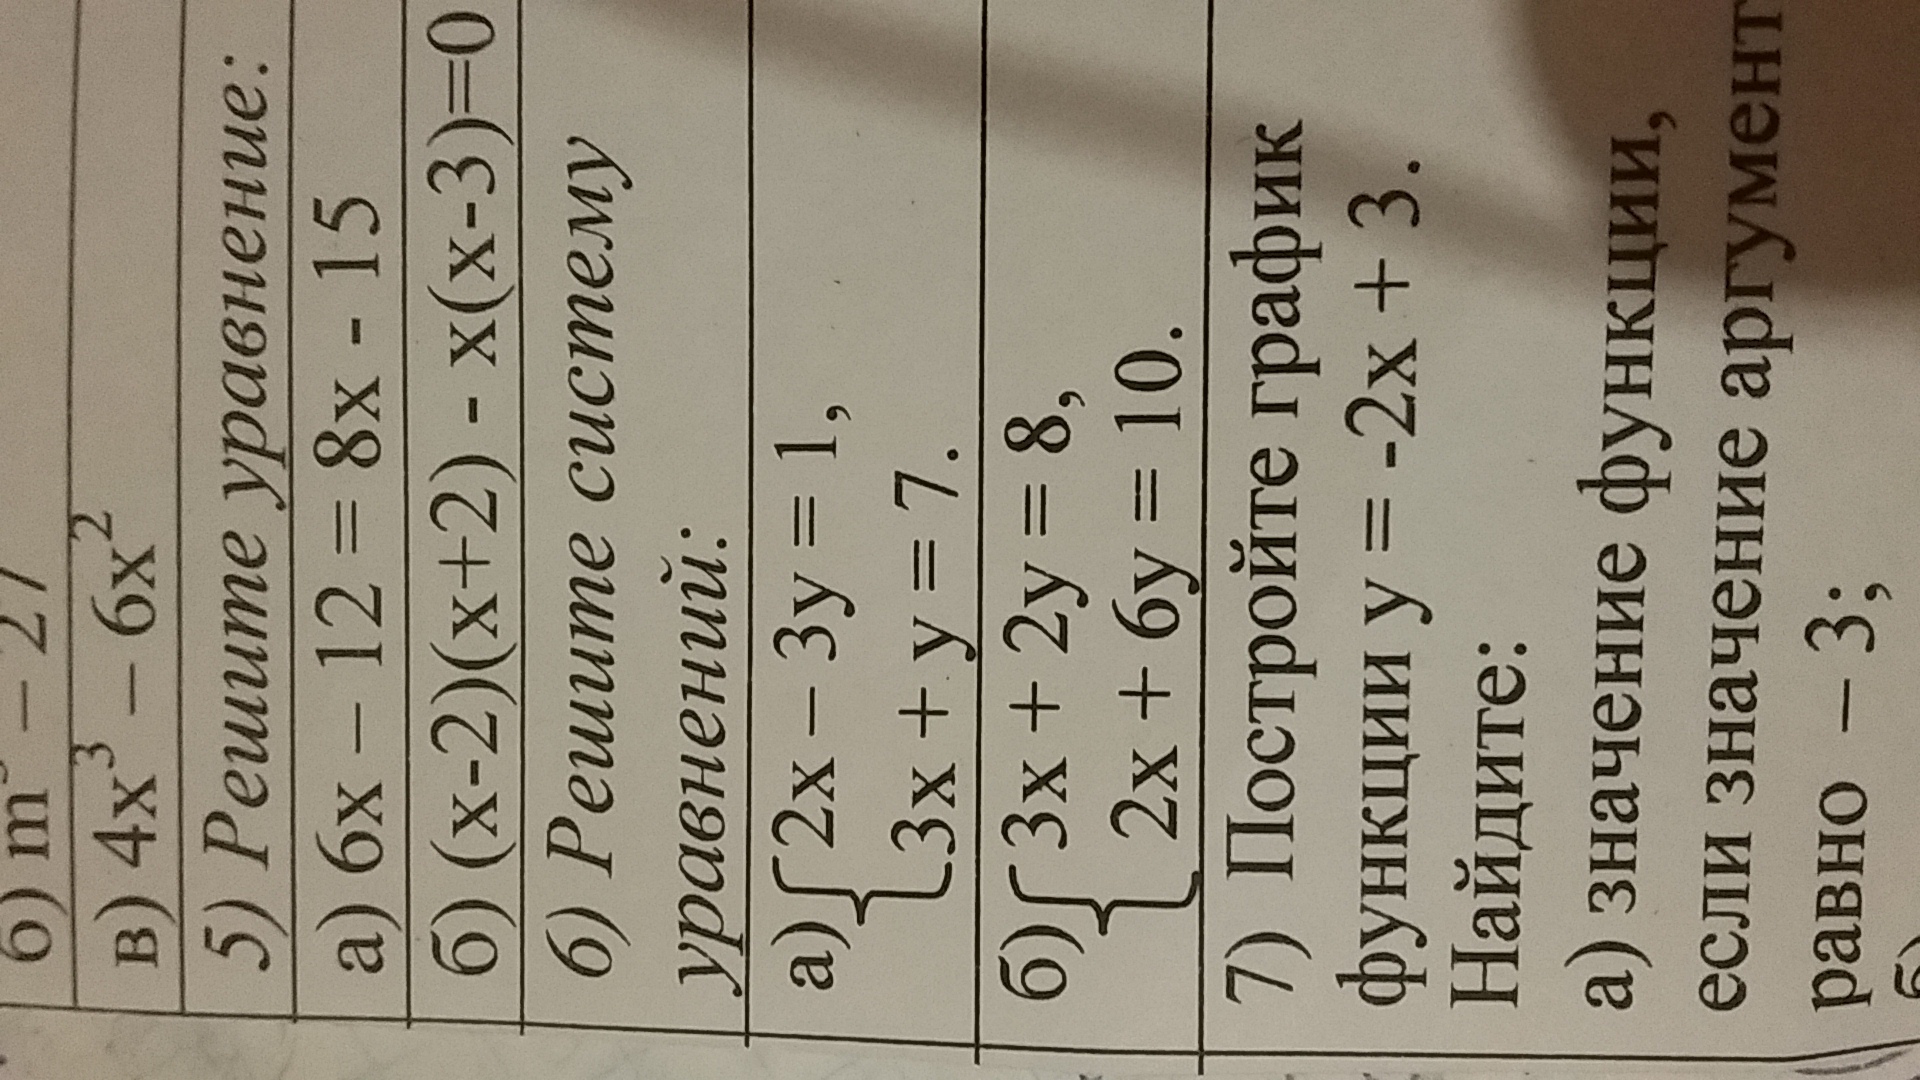 б) m³ – 27
в) 4x³ – 6x²
5) Решите уравнение:
а) 6x – 12 = 8x - 15
б) (x-2)(x+2) - x(x-3)=0
6) Решите систему
уравнений:
а) {2x – 3y = 1,
3x + y = 7.
б) {3x + 2y = 8,
2x + 6y = 10.
7) Постройте график
функции y = -2x + 3.
Найдите:
а) значение функции,
если значение аргумент
равно – 3;
б)